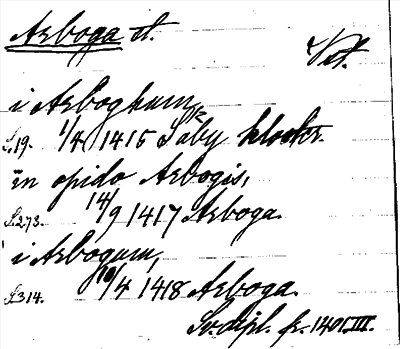 Arboga st. Vst.
i Arboghum,
S.19. 1/4 1415 Säby kloster.
in opido Arbogis,
S.273. 14/9 1417 Arboga.
i Arbogum,
S.314. 10/4 1418 Arboga.
Sv. dipl. fr. 1401. III.